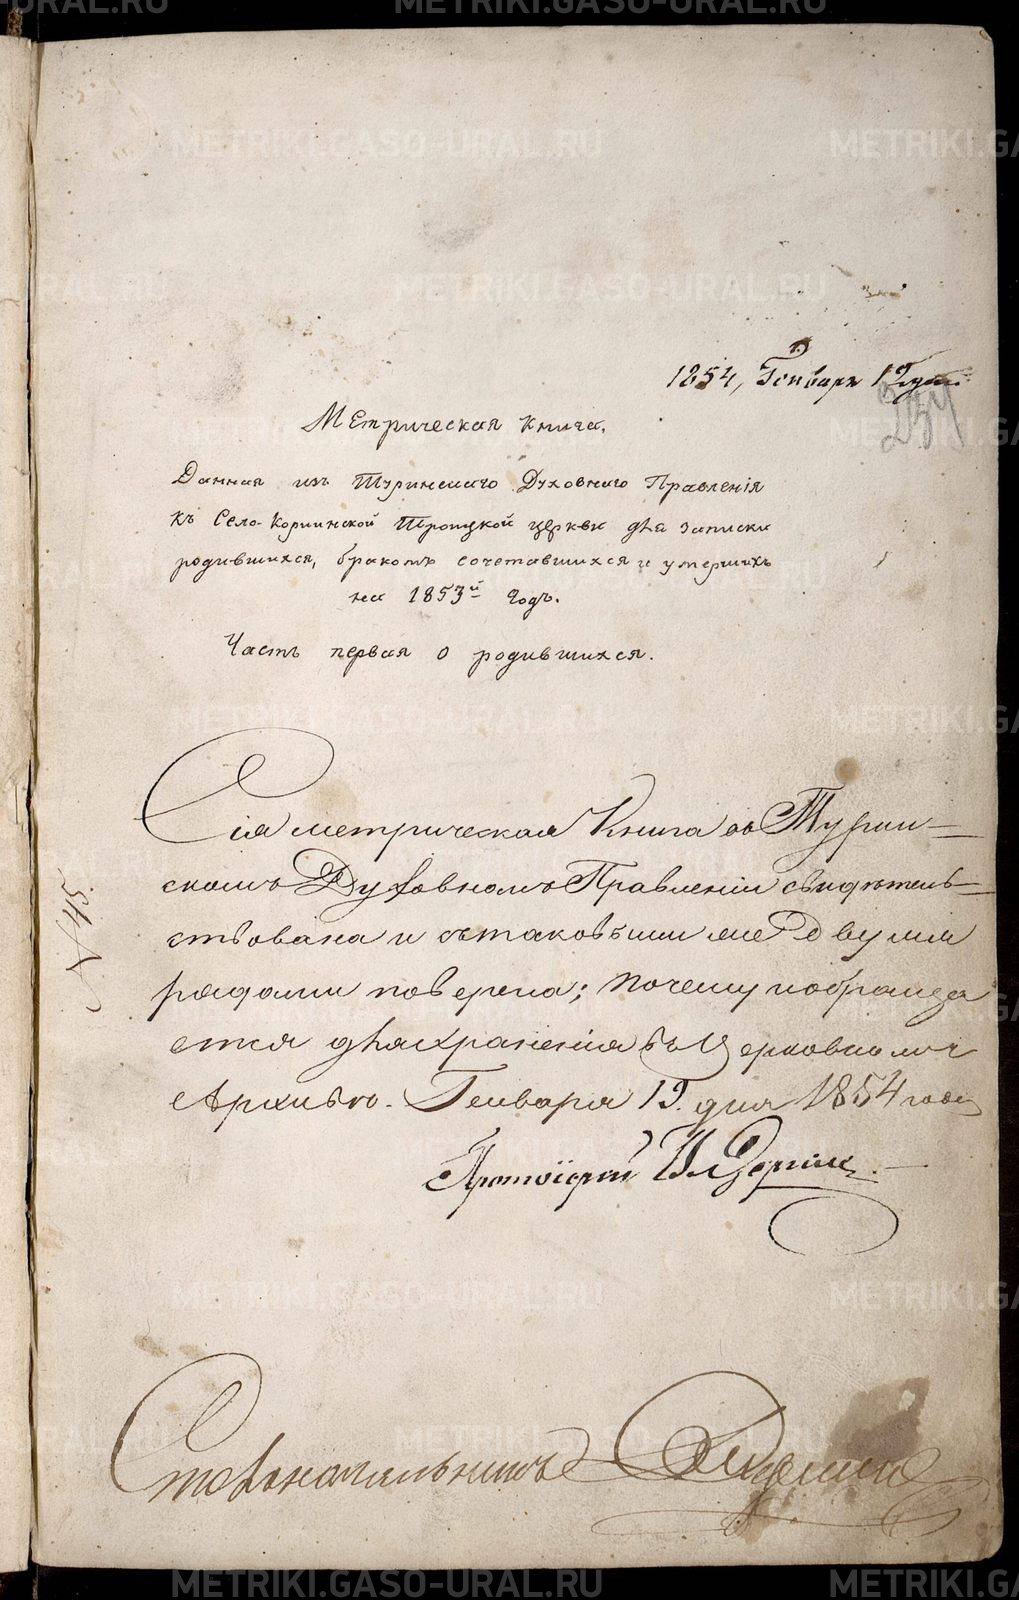 1854, Генваря 19 дня
234
Метрическая книга,
Данная изъ Туринскаго Духовнаго Правленія
къ Село-Коркинской Троицкой церкви для записки
родившихся, бракомъ сочетавшихся и умершихъ
на 1853й годъ.
Часть первая о родившихся.
Сія метрическая Книга въ Турин-
скомъ Духовномъ Правленіи свидѣтель-
ствована и съ таковыми же двумя
родами повѣрена; почему и обраща
ется для храненія въ Церковномъ
Архивѣ. Генваря 19. дня 1854 года
Протоіерей
Столоначальникъ
N 45.
METRIKI.GASO-URAL.RU